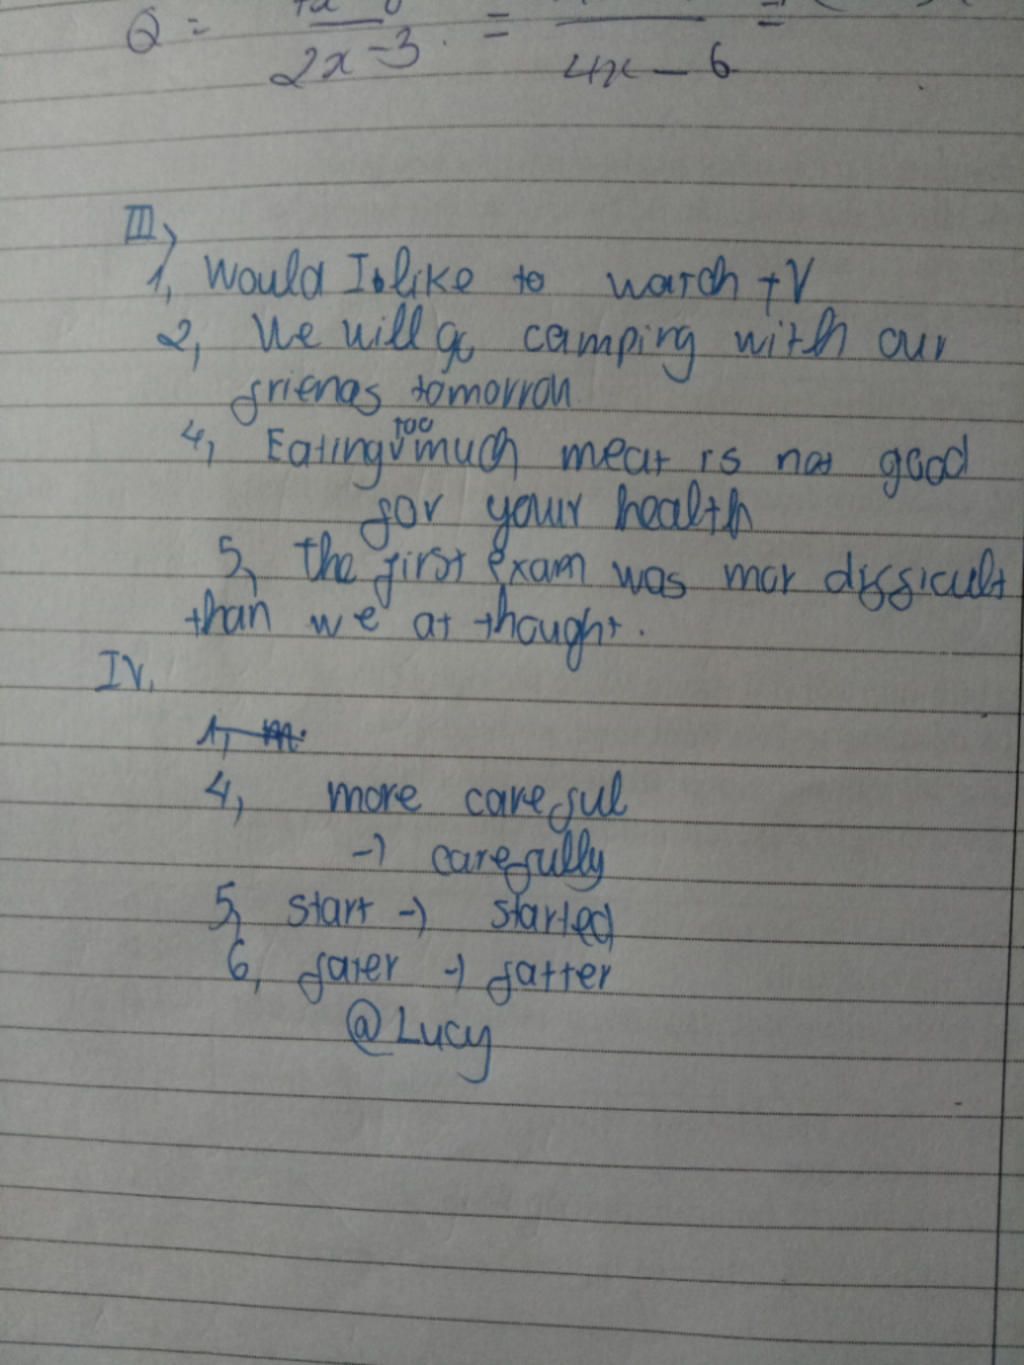 Q = 2x-3 = 4x - 6 =
III,
1, Would I like to watch tV
2, We will go camping with our
friends tomorrow
4, Eating too much meat is not good
for your health
5, the first exam was mor difficult
than we at thought.
IV,
4, more careful
-> carefully
5, start -> started
6, farer -> fatter
@Lucy